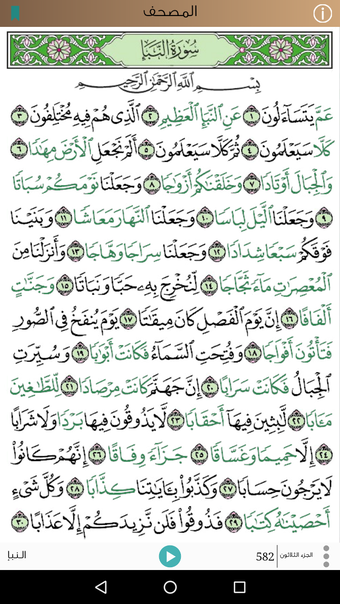 المصحف
سُورَةُ النَّبَإِ
بِسْمِ ٱللَّهِ ٱلرَّحْمَٰنِ ٱلرَّحِيمِ
عَمَّ يَتَسَآءَلُونَ ١ عَنِ ٱلنَّبَإِ ٱلْعَظِيمِ ٢ ٱلَّذِى هُمْ فِيهِ مُخْتَلِفُونَ ٣
كَلَّا سَيَعْلَمُونَ ٤ ثُمَّ كَلَّا سَيَعْلَمُونَ ٥ أَلَمْ نَجْعَلِ ٱلْأَرْضَ مِهَٰدًا ٦
وَٱلْجِبَالَ أَوْتَادًا ٧ وَخَلَقْنَٰكُمْ أَزْوَٰجًا ٨ وَجَعَلْنَا نَوْمَكُمْ سُبَاتًا
٩ وَجَعَلْنَا ٱلَّيْلَ لِبَاسًا ١٠ وَجَعَلْنَا ٱلنَّهَارَ مَعَاشًا ١١ وَبَنَيْنَا
فَوْقَكُمْ سَبْعًا شِدَادًا ١٢ وَجَعَلْنَا سِرَاجًا وَهَّاجًا ١٣ وَأَنزَلْنَا مِنَ
ٱلْمُعْصِرَٰتِ مَآءً ثَجَّاجًا ١٤ لِّنُخْرِجَ بِهِۦ حَبًّا وَنَبَاتًا ١٥ وَجَنَّٰتٍ
أَلْفَافًا ١٦ إِنَّ يَوْمَ ٱلْفَصْلِ كَانَ مِيقَٰتًا ١٧ يَوْمَ يُنفَخُ فِى ٱلصُّورِ
فَتَأْتُونَ أَفْوَاجًا ١٨ وَفُتِحَتِ ٱلسَّمَآءُ فَكَانَتْ أَبْوَٰبًا ١٩ وَسُيِّرَتِ
ٱلْجِبَالُ فَكَانَتْ سَرَابًا ٢٠ إِنَّ جَهَنَّمَ كَانَتْ مِرْصَادًا ٢١ لِّلطَّٰغِينَ
مَـَٔابًا ٢٢ لَّٰبِثِينَ فِيهَآ أَحْقَابًا ٢٣ لَّا يَذُوقُونَ فِيهَا بَرْدًا وَلَا شَرَابًا
٢٤ إِلَّا حَمِيمًا وَغَسَّاقًا ٢٥ جَزَآءً وِفَاقًا ٢٦ إِنَّهُمْ كَانُوا۟
لَا يَرْجُونَ حِسَابًا ٢٧ وَكَذَّبُوا۟ بِـَٔايَٰتِنَا كِذَّابًا ٢٨ وَكُلَّ شَىْءٍ
أَحْصَيْنَٰهُ كِتَٰبًا ٢٩ فَذُوقُوا۟ فَلَن نَّزِيدَكُمْ إِلَّا عَذَابًا ٣٠
الجزء الثلاثون 582 النبإ